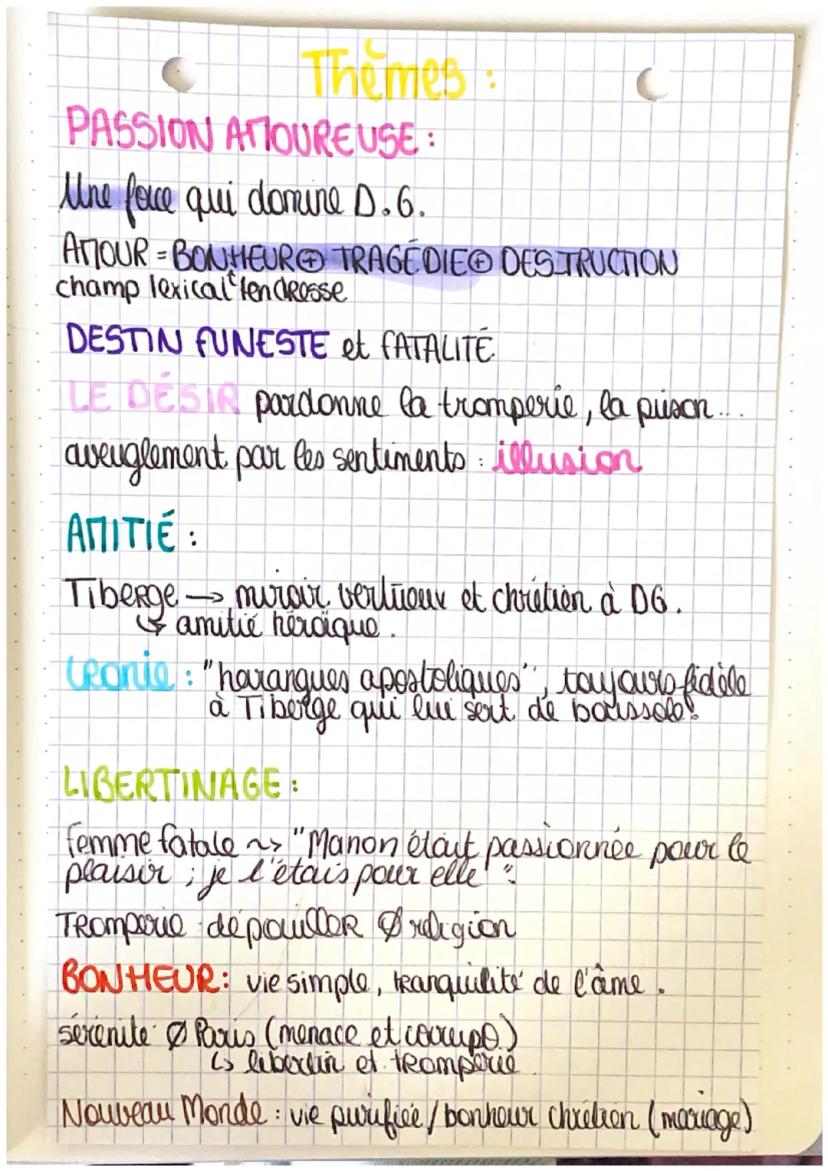 Thèmes :
PASSION AMOUREUSE :
Une force qui domine D.G.
AMOUR = BONHEUR ⊕ TRAGÉDIE ⊕ DESTRUCTION
champ lexical tendresse
DESTIN FUNESTE et FATALITÉ
LE DÉSIR pardonne la tromperie, la prison...
aveuglement par les sentiments : illusion
AMITIÉ :
Tiberge → miroir vertueux et chrétien à DG.
↳ amitié héroïque.
Ironie : "harangues apostoliques", toujours fidèle
à Tiberge qui lui sert de boussole.
LIBERTINAGE :
femme fatale ~> "Manon était passionnée pour le
plaisir ; je l'étais pour elle".
Tromperie dépouiller Ø religion
BONHEUR : vie simple, tranquilité de l'âme.
sérénité Ø Paris (menace et corrup⊖)
↳ libertin et tromperie
Nouveau Monde : vie purifiée / bonheur chrétien (mariage)